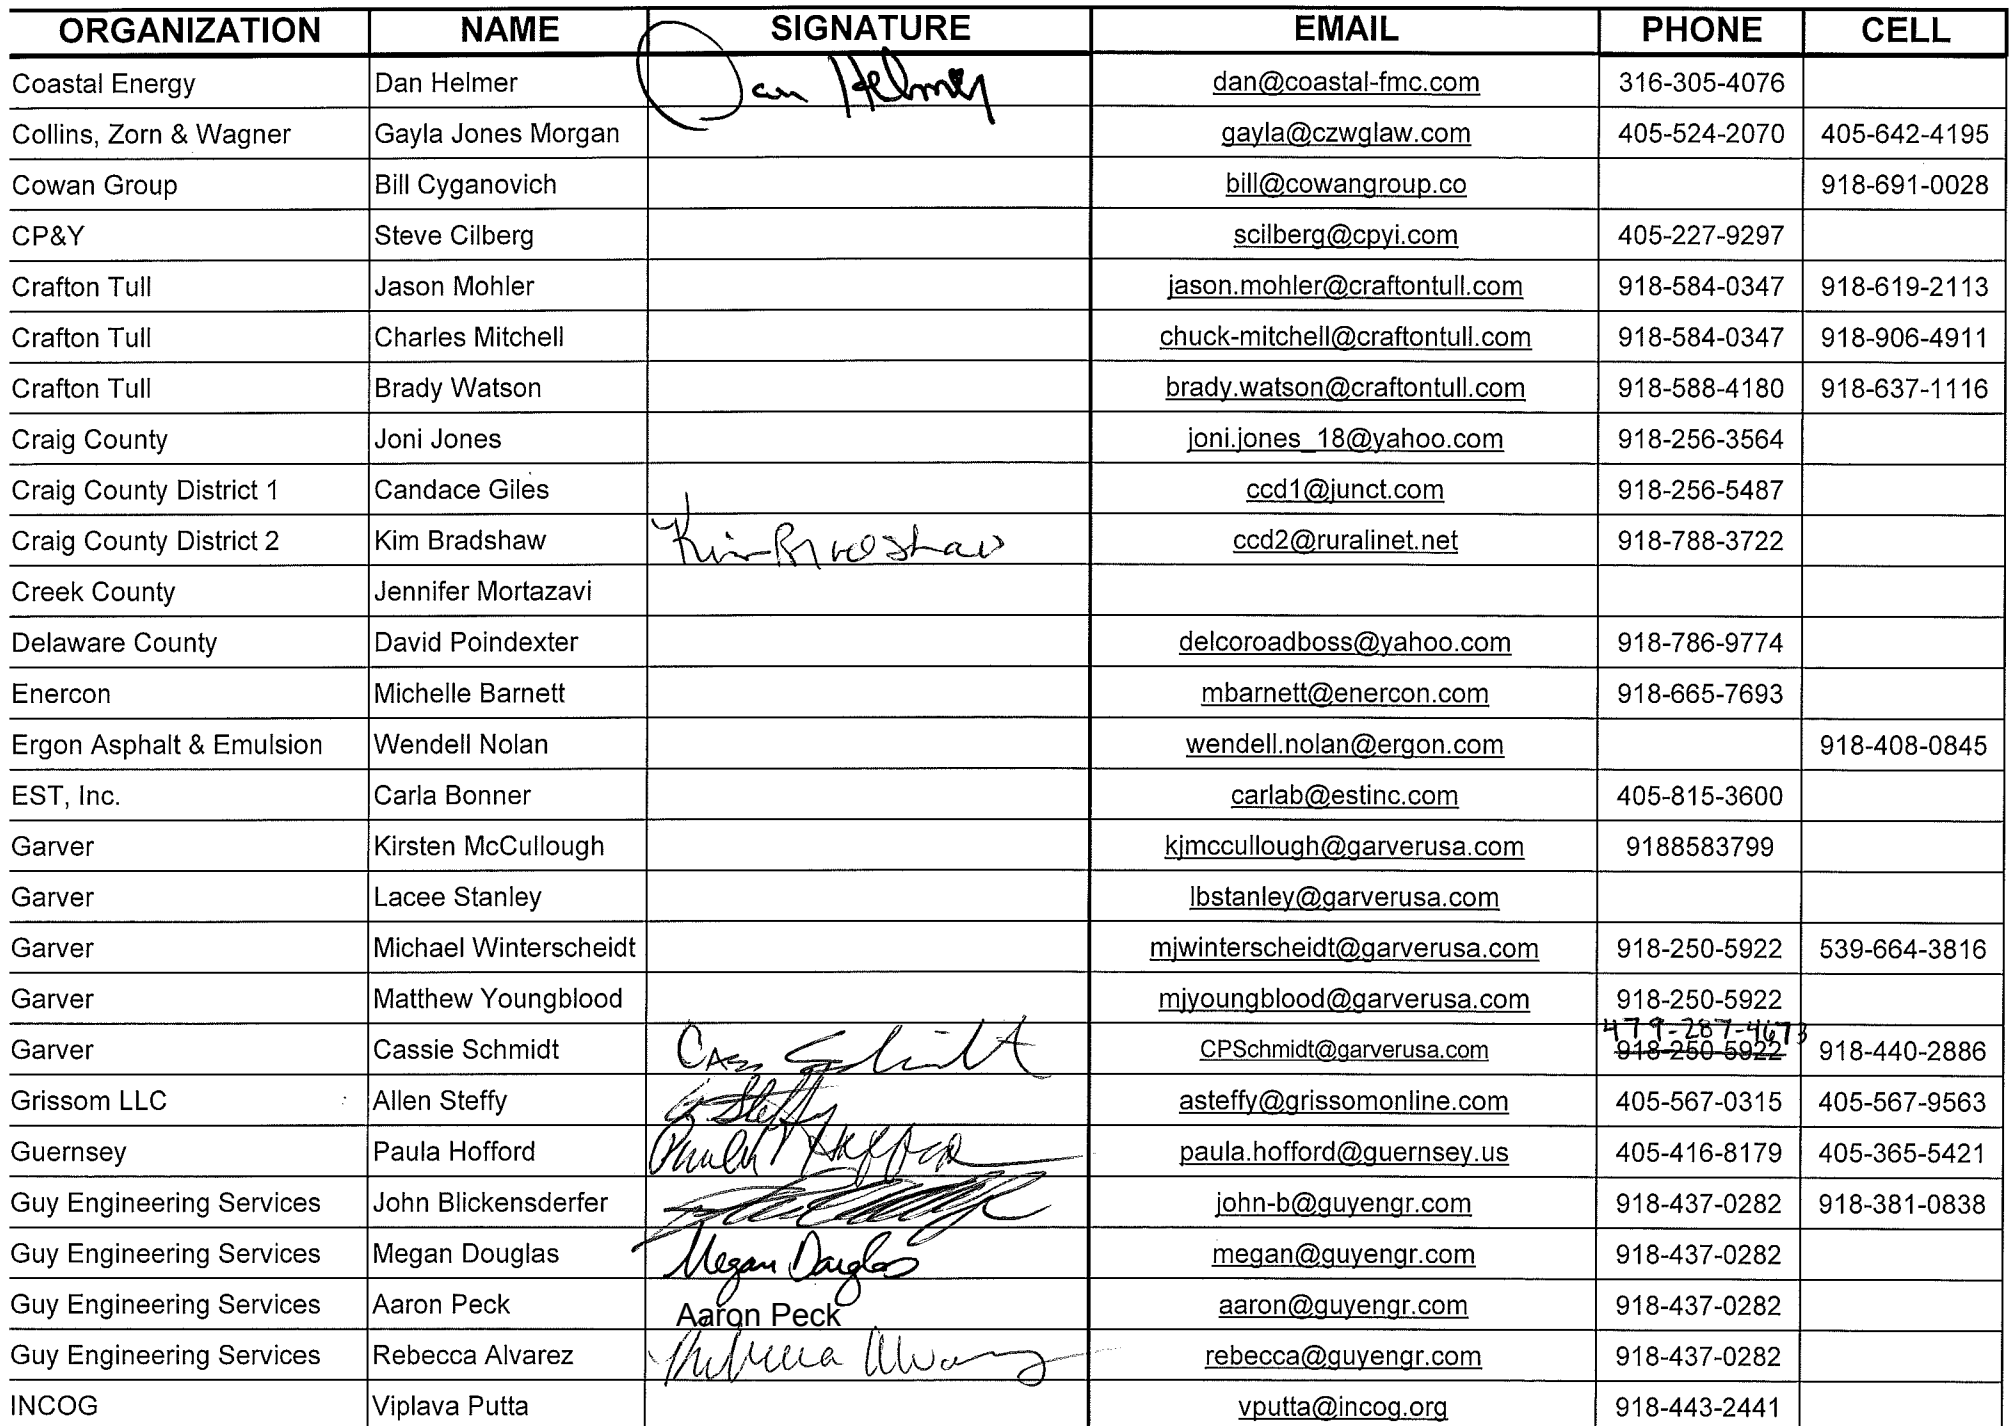 ORGANIZATION NAME SIGNATURE EMAIL PHONE CELL
Coastal Energy Dan Helmer Dan Helmer dan@coastal-fmc.com 316-305-4076
Collins, Zorn & Wagner Gayla Jones Morgan gayla@czwglaw.com 405-524-2070 405-642-4195
Cowan Group Bill Cyganovich bill@cowangroup.co 918-691-0028
CP&Y Steve Cilberg scilberg@cpyi.com 405-227-9297
Crafton Tull Jason Mohler jason.mohler@craftontull.com 918-584-0347 918-619-2113
Crafton Tull Charles Mitchell chuck-mitchell@craftontull.com 918-584-0347 918-906-4911
Crafton Tull Brady Watson brady.watson@craftontull.com 918-588-4180 918-637-1116
Craig County Joni Jones joni.jones_18@yahoo.com 918-256-3564
Craig County District 1 Candace Giles ccd1@junct.com 918-256-5487
Craig County District 2 Kim Bradshaw Kim Bradshaw ccd2@ruralinet.net 918-788-3722
Creek County Jennifer Mortazavi
Delaware County David Poindexter delcoroadboss@yahoo.com 918-786-9774
Enercon Michelle Barnett mbarnett@enercon.com 918-665-7693
Ergon Asphalt & Emulsion Wendell Nolan wendell.nolan@ergon.com 918-408-0845
EST, Inc. Carla Bonner carlab@estinc.com 405-815-3600
Garver Kirsten McCullough kjmccullough@garverusa.com 9188583799
Garver Lacee Stanley lbstanley@garverusa.com
Garver Michael Winterscheidt mjwinterscheidt@garverusa.com 918-250-5922 539-664-3816
Garver Matthew Youngblood mjyoungblood@garverusa.com 918-250-5922
479-287-4673
Garver Cassie Schmidt Cass Schmidt CPSchmidt@garverusa.com 918-250-5922 918-440-2886
Grissom LLC Allen Steffy A. Steffy asteffy@grissomonline.com 405-567-0315 405-567-9563
Guernsey Paula Hofford Paula Hofford paula.hofford@guernsey.us 405-416-8179 405-365-5421
Guy Engineering Services John Blickensderfer john-b@guyengr.com 918-437-0282 918-381-0838
Guy Engineering Services Megan Douglas Megan Douglas megan@guyengr.com 918-437-0282
Guy Engineering Services Aaron Peck Aaron Peck aaron@guyengr.com 918-437-0282
Guy Engineering Services Rebecca Alvarez Rebecca Alvarez rebecca@guyengr.com 918-437-0282
INCOG Viplava Putta vputta@incog.org 918-443-2441